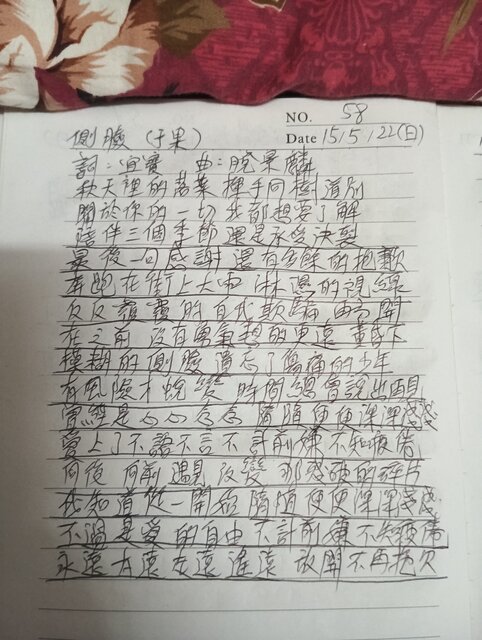 NO. 58
側臉 (于果)
Date 15/5/22(日)
詞：宜賓 曲：脫景麟
秋天裡的落葉 揮手向樹道別
關於你的一切 我都想要了解
陪伴三個季節 還是承受決裂
最後一句感謝 還有多餘的抱歉
奔跑在街上大雨 淋濕的視線
反反覆覆的自我欺騙 兩
在之前 沒有勇氣想的更遠
模糊的側臉 遺忘了傷痛的少年
有風險才蛻變 時間總會說出
曾經是心心念念 隨隨便便深深淺淺
愛上了不語不言 不計前嫌 不知疲倦
向後 向前 遇見 改變 那殘破的碎片
我知道從一開始 隨隨便便深深淺淺
不過是愛的自由 不計前嫌 不知疲倦
永遠 遙遠 放開 不再抱歉